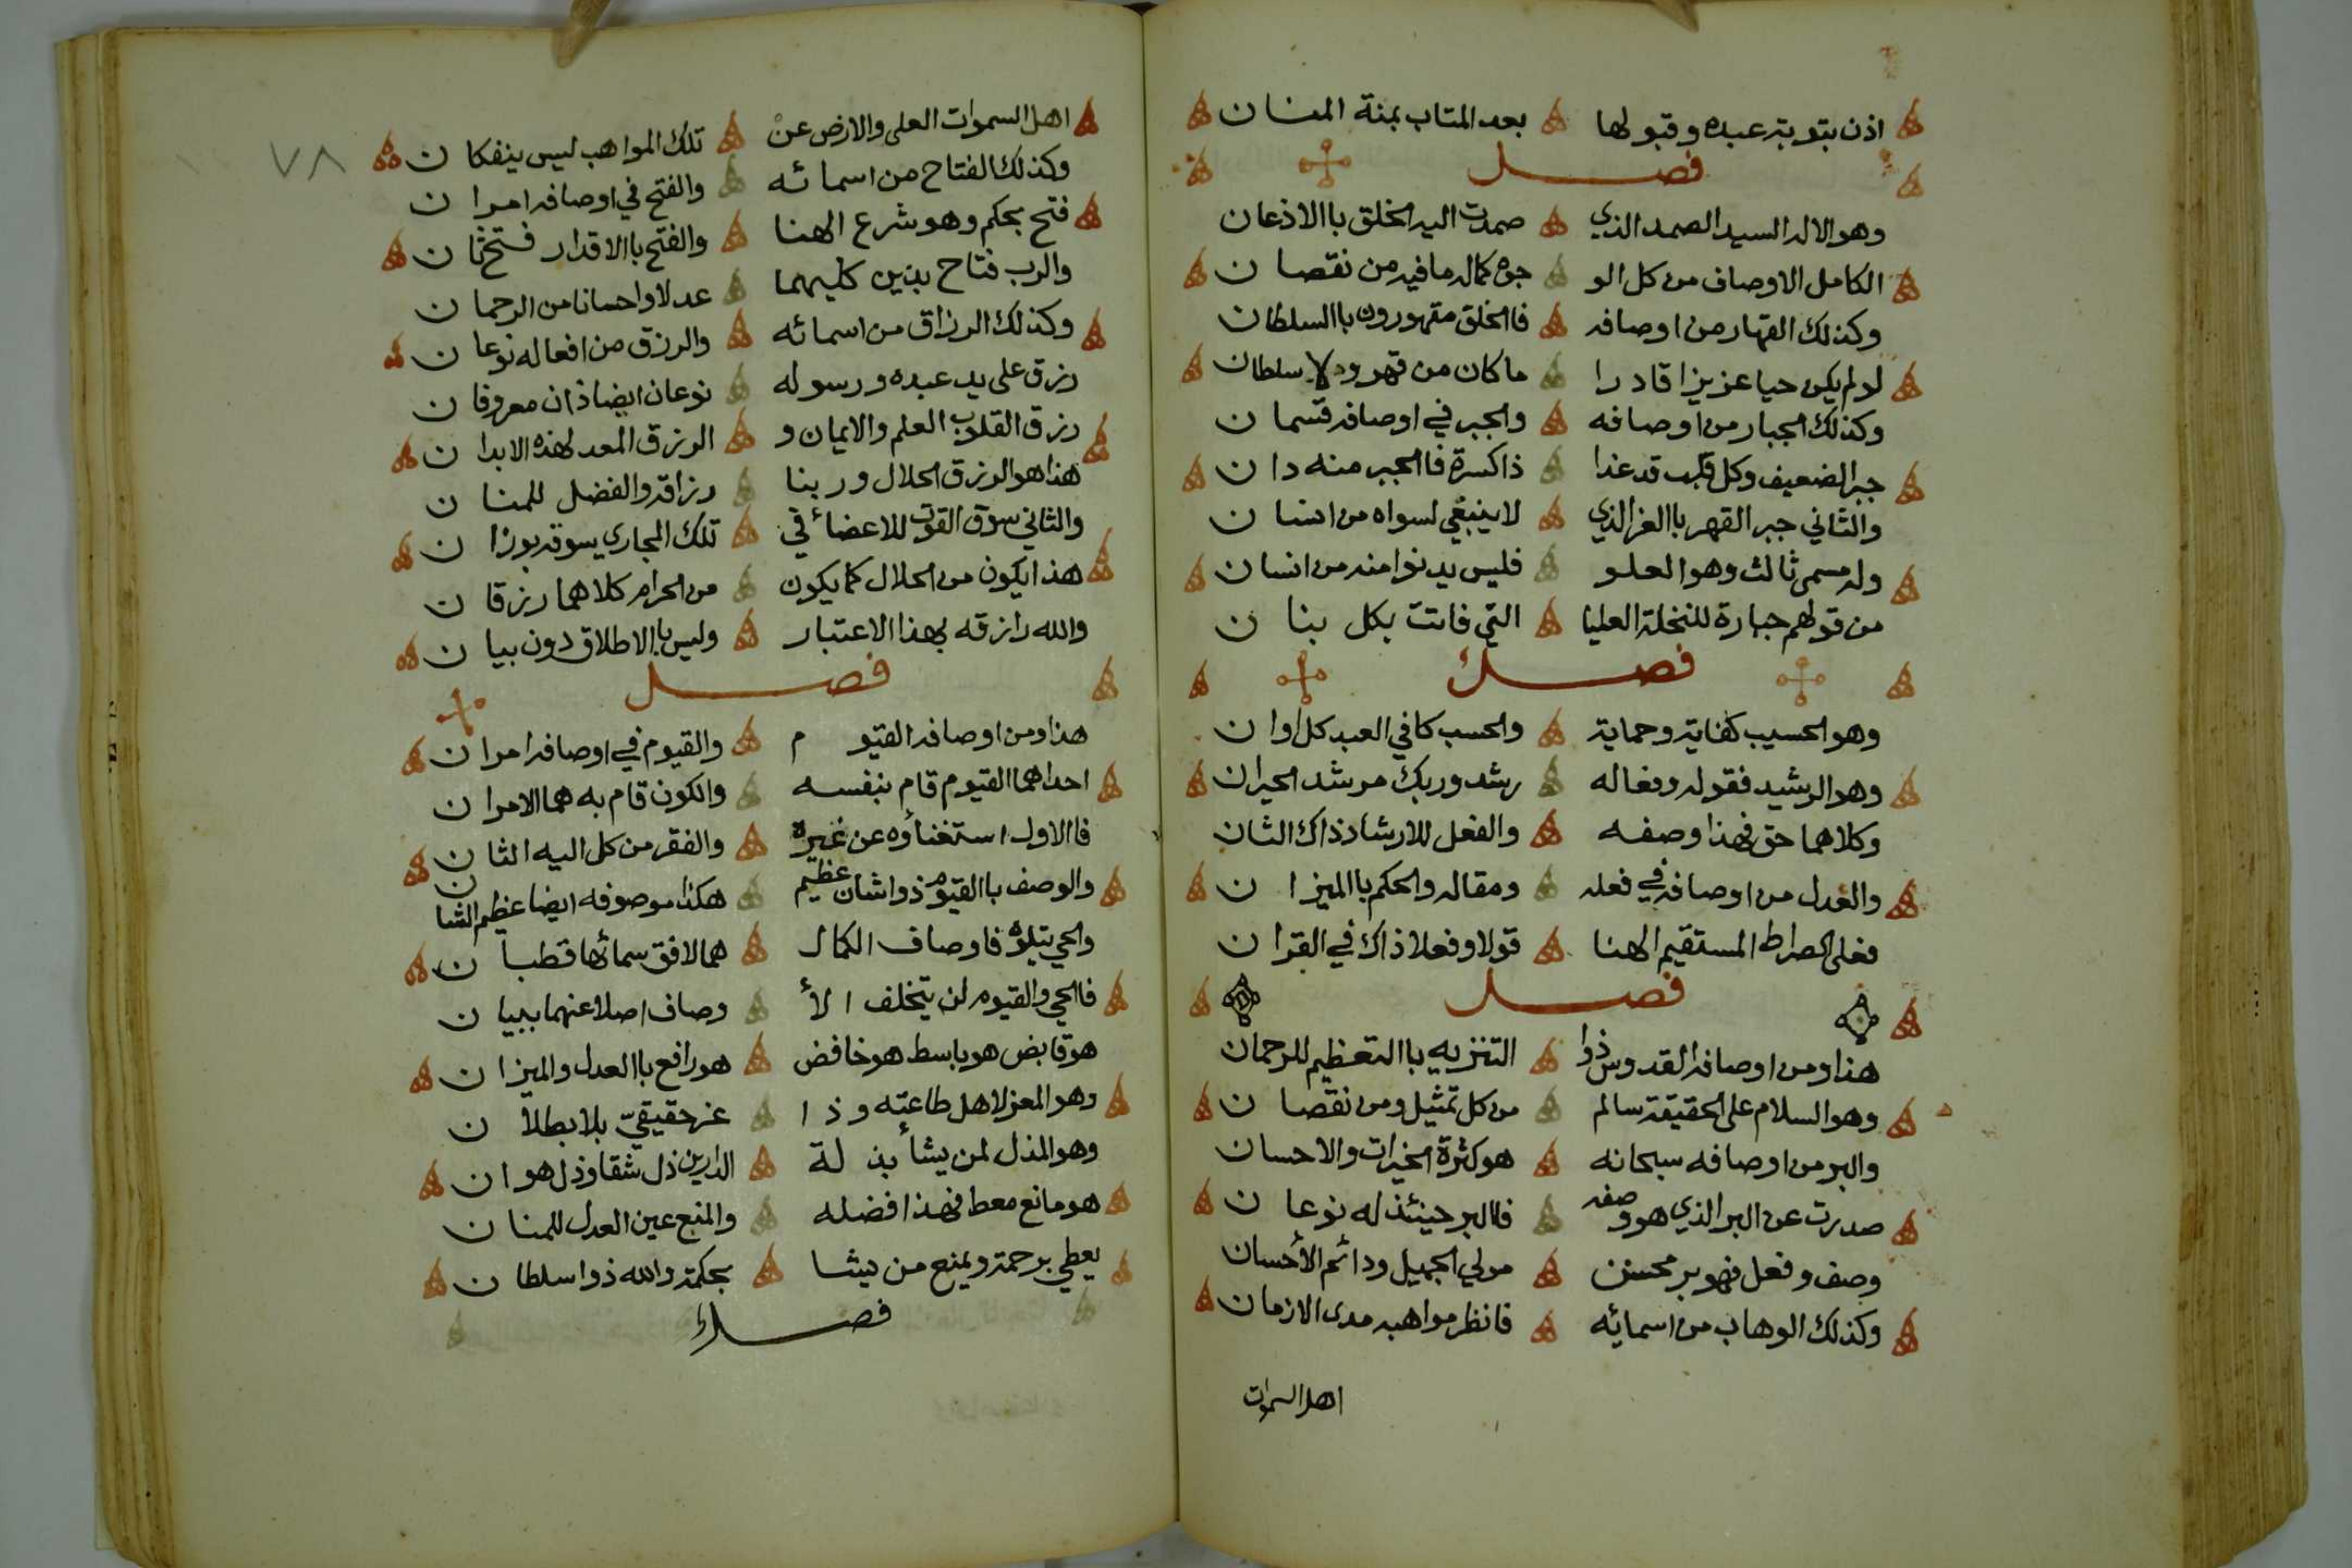 اذن بتوبة عبده وقبولها بعد المتاب بمنة المنان
فصل
وهو الاله السيد الصمد الذي صمدت اليه الخلق باالاذعان
الكامل الاوصاف من كل الو جوه كماله ما فيه من نقصان
وكذلك القهار من اوصافه فاالخلق مقهورون باالسلطان
لو لم يكن حيا عزيزا قادرا ما كان من قهر ولا سلطان
وكذلك الجبار من اوصافه والجبر في اوصافه قسمان
جبر الضعيف وكل قلب قد غدا ذا كسرة فاالجبر منه دان
والثاني جبر القهر باالعز الذي لا ينبغي لسواه من انسان
وله مسمى ثالث وهو العلو فليس يدنوا منه من انسان
من قولهم جبارة للنخلة العليا التي فاتت بكل بنان
فصل
وهو الحسيب كفاية وحماية والحسب كافي العبد كل اوان
وهو الرشيد فقوله وفعاله رشد وربك مرشد الحيران
وكلاهما حق فهذا وصفه والفعل للارشاد ذاك الثان
والعدل من اوصافه في فعله ومقاله والحكم باالميزان
فعلى الصراط المستقيم الهنا قولا وفعلا ذاك في القران
فصل
هذا ومن اوصافه القدوس ذوا التنزيه باالتعظيم للرحمان
وهو السلام على الحقيقة سالم من كل تمثيل ومن نقصان
والبر من اوصافه سبحانه هو كثرة الخيرات والاحسان
صدرت عن البر الذي هو وصفه فاالبر حينئذ له نوعان
وصف وفعل فهو بر محسن مولي الجميل ودائم الأحسان
وكذلك الوهاب من اسمائه فانظر مواهبه مدى الازمان
اهل السموات
٧٨
اهل السموات العلى والارض عن تلك المواهب ليس ينفكان
وكذلك الفتاح من اسمائه والفتح في اوصافه امران
فتح بحكم وهو شرع الهنا والفتح باالاقدار فتح ثان
والرب فتاح بذين كليهما عدلا واحسانا من الرحمان
وكذلك الرزاق من اسمائه والرزق من افعاله نوعان
رزق على يد عبده ورسوله نوعان ايضا ذان معروفان
رزق القلوب العلم والايمان و الرزق المعد لهذه الابدان
هذا هو الرزق الحلال وربنا رزاقه والفضل للمنان
والثاني سوق القوت للاعضاء في تلك المجاري يسوقه بوزان
هذا يكون من الحلال كما يكون من الحرام كلاهما رزقان
والله رازقه بهذا الاعتبار وليس باالاطلاق دون بيان
فصل
هذا ومن اوصافه القيوم والقيوم في اوصافه امران
احداهما القيوم قام بنفسه والكون قام به هما الامران
فاالاول استغناؤه عن غيره والفقر من كل اليه الثان
والوصف باالقيوم ذوا شان عظيم هكذا موصوفه ايضا عظيم الشان
والحي يتلوه فاوصاف الكمال هما لافق سمائها قطبان
فاالحي والقيوم لن يتخلف الأ وصاف اصلا عنهما ببيان
هو قابض هو باسط هو خافض هو رافع باالعدل والميزان
وهو المعز لاهل طاعته وذا عز حقيقي بلا بطلان
وهو المذل لمن يشأ بذلة الدارين ذل شقا وذل هوان
هو مانع معط فهذا فضله والمنع عين العدل للمنان
يعطي برحمة ويمنع من يشا بحكمة والله ذوا سلطان
فصل